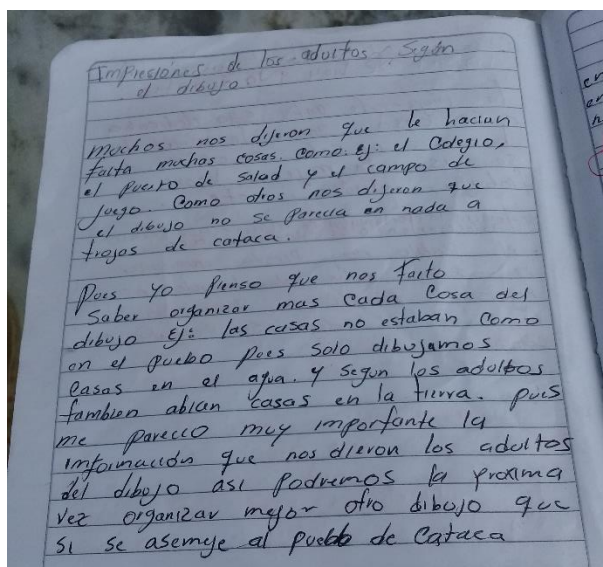 Impresiones de los adultos según
el dibujo
muchos nos dijeron que le hacian
falta muchas cosas. como. Ej: el Colegio,
el puesto de salad y el campo de
juego. Como otros nos dijeron que
el dibujo no se parecia en nada a
trojas de cataca.
Pues yo pienso que nos falto
Saber organizar mas Cada Cosa del
dibujo Ej: las casas no estaban Como
en el pueblo pues solo dibujamos
Casas en el agua. y segun los adultos
tambien abian casas en la tierra. pues
me parecio muy importante la
información que nos dieron los adultos
del dibujo asi Podremos la proxima
vez organizar mejor otro dibujo que
si se asemeje al pueblo de Cataca